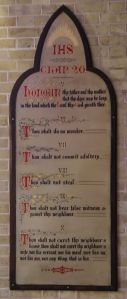 IHS
Chap 20
V
Honour thy father and thy mother
that thy days may be long
in the land which the Lord thy God giveth thee
Thou shalt do no murder.
VII
Thou shalt not commit adultery.
Thou shalt not steal.
Thou shalt not bear false witness a-
gainst thy neighbour
X
Thou shalt not covet thy neighbour's
house thou shalt not covet thy neighbour's
wife nor his servant nor his maid nor his ox
nor his ass nor any thing that is his